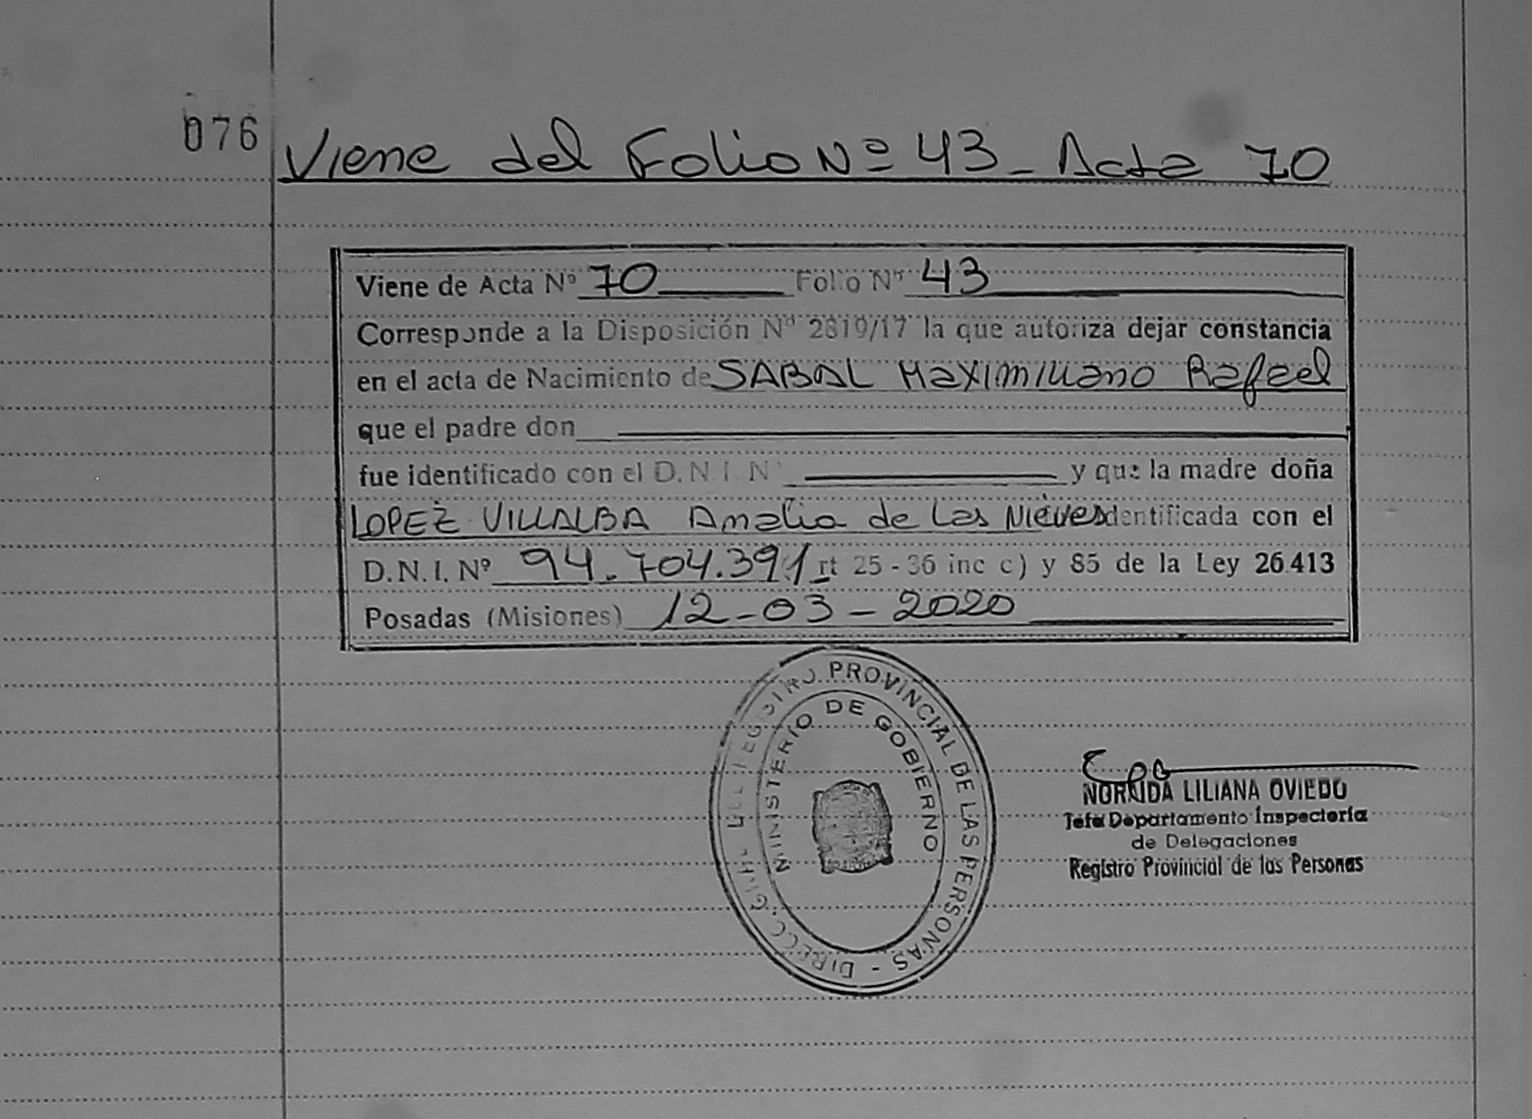 076
Viene del Folio Nº 43 - Acta 70
Viene de Acta Nº 70 Folio Nº 43
Corresponde a la Disposición Nº 2819/17 la que autoriza dejar constancia
en el acta de Nacimiento de SABAL Maximiliano Rafael
que el padre don
fue identificado con el D.N.I. Nº y que la madre doña
LOPEZ VILLALBA Amalia de Las Nieves identificada con el
D.N.I. Nº 94.704.391 rt 25 - 36 inc c) y 85 de la Ley 26.413
Posadas (Misiones) 12-03-2020
REGISTRO PROVINCIAL DE LAS PERSONAS - DIRECC. CIVIL
MINISTERIO DE GOBIERNO
LILIANA OVIEDO
Jefa Departamento Inspectoría
de Delegaciones
Registro Provincial de las Personas